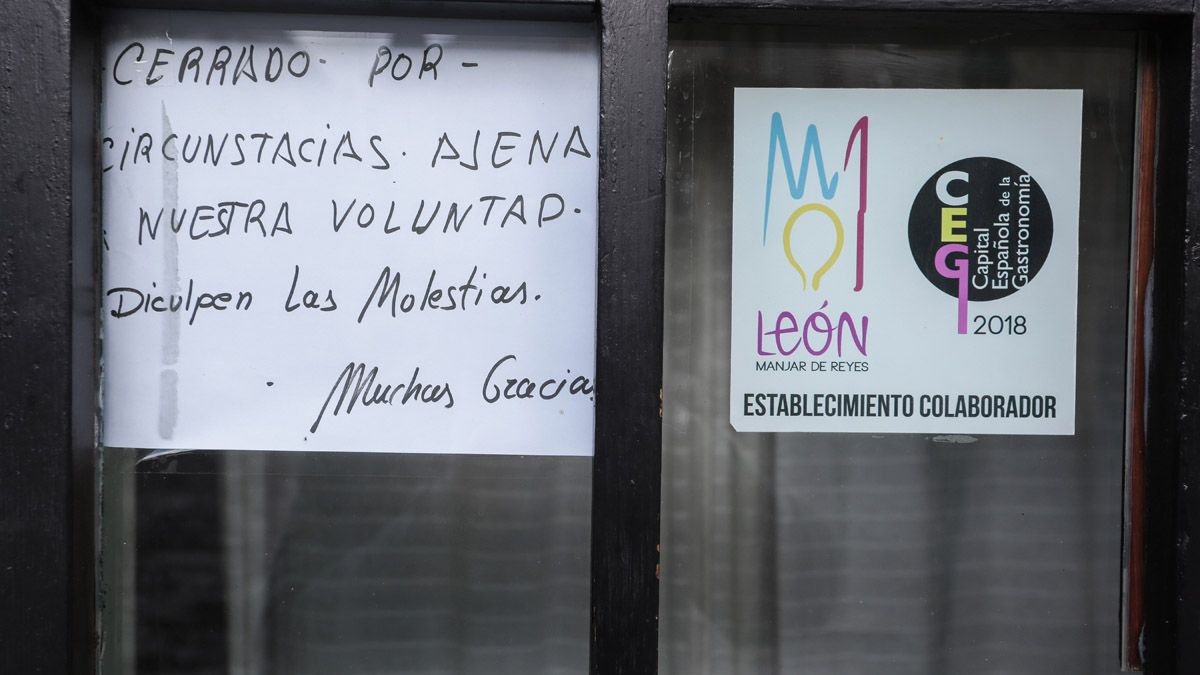 CERRADO. POR -
CIRCUNSTACIAS. AJENA
A NUESTRA VOLUNTAD.
Diculpen Las Molestias.
Muchas Gracias
LEÓN
MANJAR DE REYES
CEG
Capital
Española de la
Gastronomía
2018
ESTABLECIMIENTO COLABORADOR